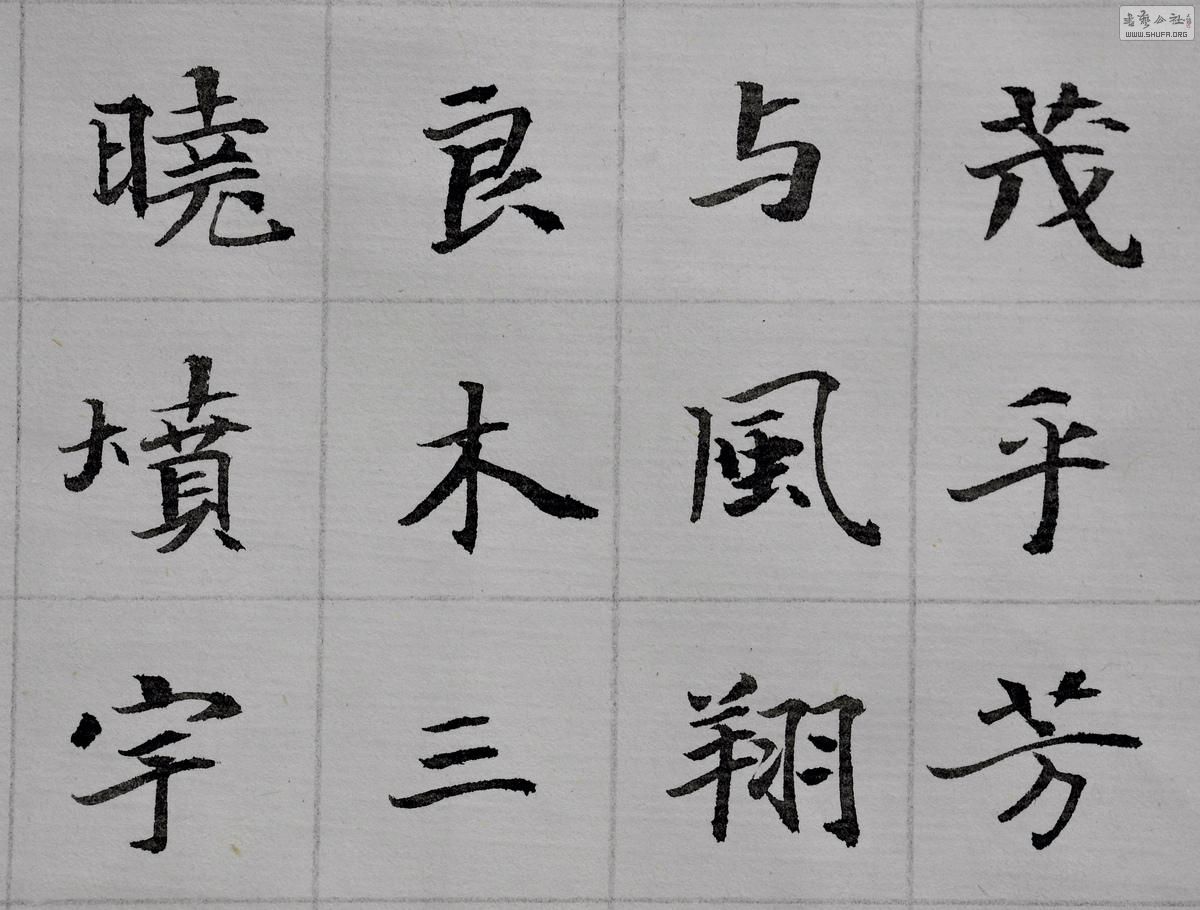 茂平芳
与風翔
良木三
曉墳宇
書藝公社
WWW.SHUFA.ORG